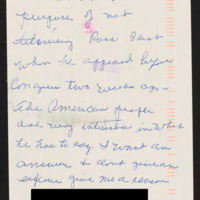 purpose of not
Ross Perot
when he appeared before
Congress two weeks ago.
The American people
are very interested in what
he has to say. I want an
answer & dont give an
excuse give me a reason